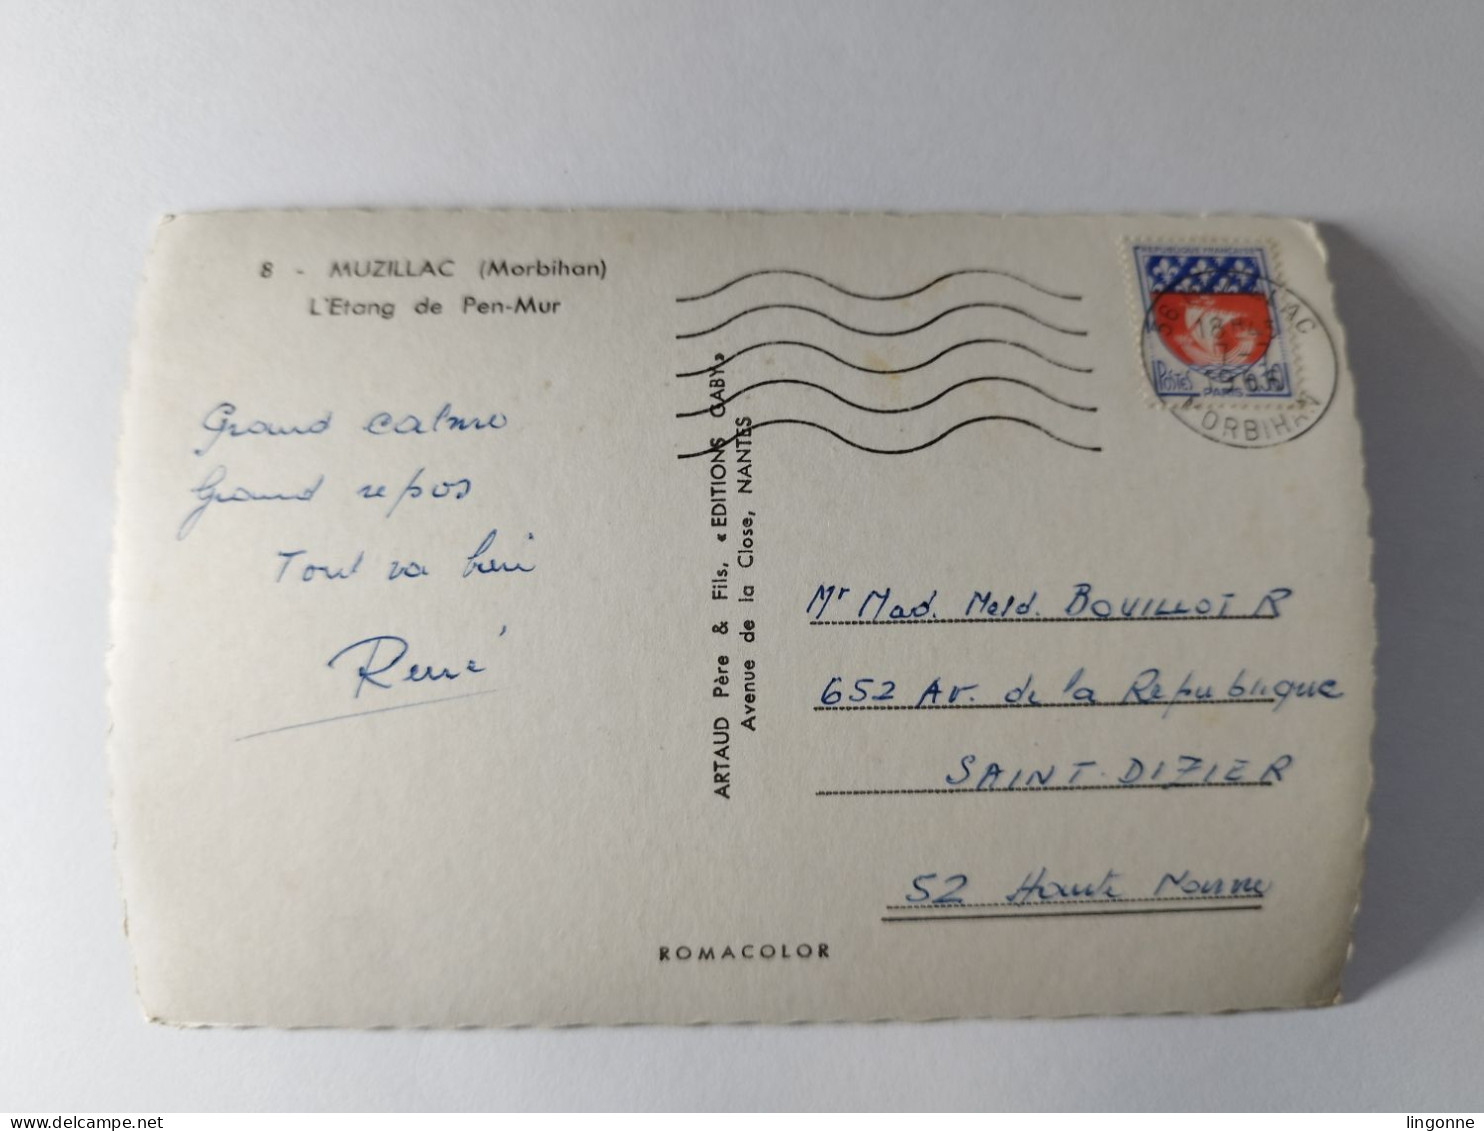 8 - MUZILLAC (Morbihan)
L'Etang de Pen-Mur
Grand calme
Grand repos
Tout va bien
René
ARTAUD Père & Fils, « EDITIONS GABY »
Avenue de la Close, NANTES
REPUBLIQUE FRANÇAISE
POSTES
PARIS
56
18 H
MORBIHAN
Mr Mad. Meld. BOUILLOT R
652 Av. de la République
SAINT-DIZIER
52 Haute Marne
ROMACOLOR
lingonne
www.delcampe.net